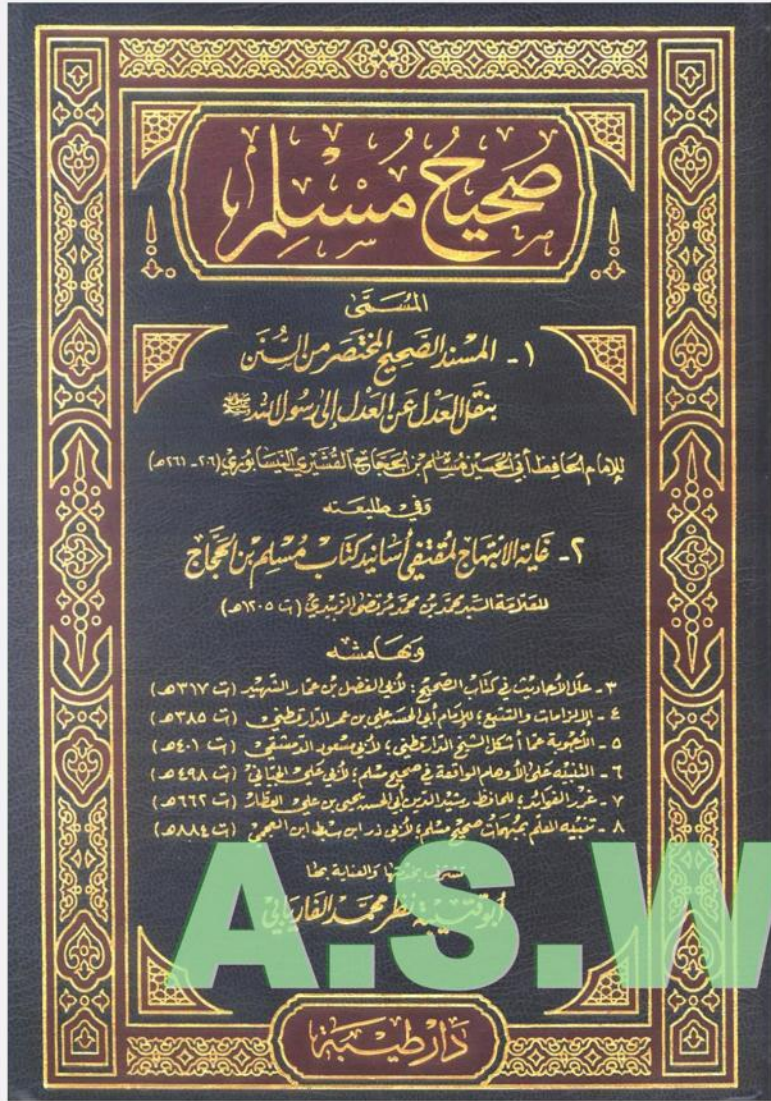 صحيح مسلم
المسمى
١ - المسند الصحيح المختصر من السنن
بنقل العدل عن العدل إلى رسول الله ﷺ
للإمام الحافظ أبي الحسين مسلم بن الحجاج القشيري النيسابوري (٢٠٦ - ٢٦١ هـ)
وفي طليعته
٢ - غاية الابتهاج لمقتفي أسانيد كتاب مسلم بن الحجاج
للعلامة السيد محمد بن محمد مرتضى الزبيدي (ت ١٢٠٥ هـ)
وبهامشه
٣ - علل الأحاديث في كتاب الصحيح؛ لأبي الفضل بن عمار الشهيد (ت ٣١٧ هـ)
٤ - الإلزامات والتتبع؛ للإمام أبي الحسن علي بن عمر الدارقطني (ت ٣٨٥ هـ)
٥ - الأجوبة عما أشكل الشيخ الدارقطني؛ لأبي مسعود الدمشقي (ت ٤٠١ هـ)
٦ - التنبيه على الأوهام الواقعة في صحيح مسلم؛ لأبي علي الجياني (ت ٤٩٨ هـ)
٧ - غرر الفوائد؛ للحافظ رشيد الدين أبي الحسن يحيى بن علي العطار (ت ٦٦٢ هـ)
٨ - تنبيه المعلم بمبهمات صحيح مسلم؛ لأبي ذر ابن سبط ابن العجمي (ت ٨٨٤ هـ)
تشرف بخدمتها والعناية بها
أبو قتيبة نظر محمد الفاريابي
A.S.W
دار طيبة